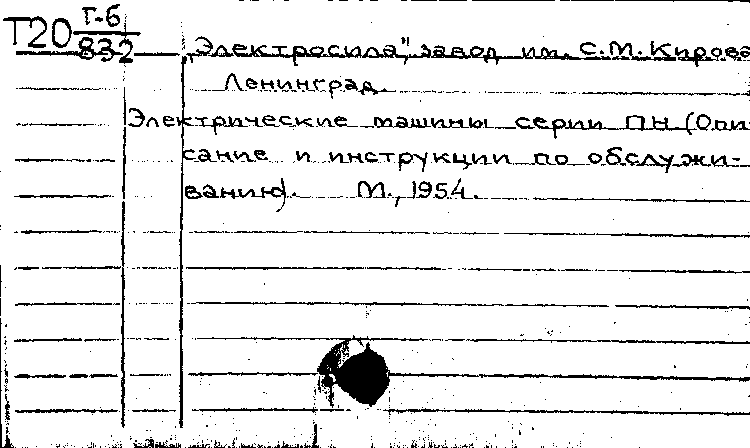 Т20 Г-6/832
„Электросила", завод им. С.М. Кирова
Ленинград.
Электрические машины серии ПН (Опи-
сание и инструкции по обслужи-
ванию). М., 1954.